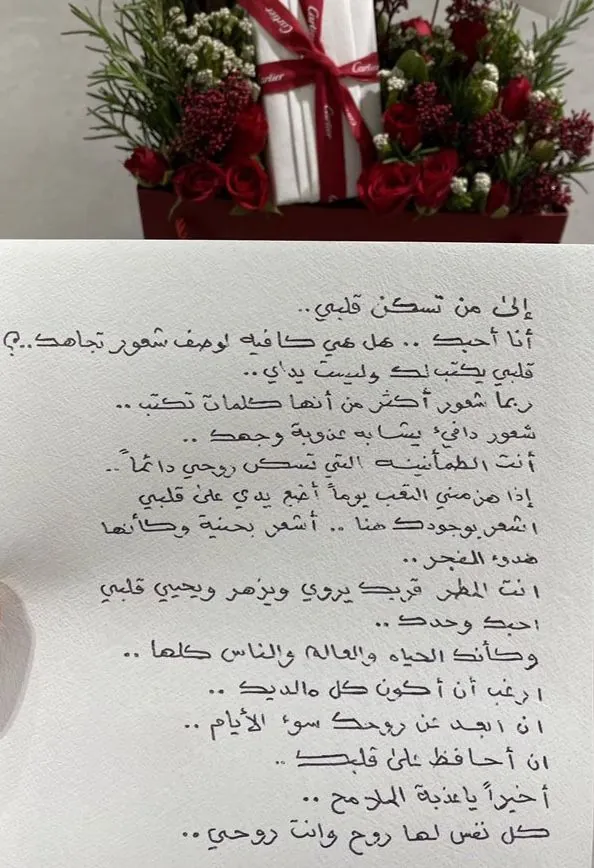 Cartier
Cartier
Cartier
Cartier
إلى من تسكن قلبي..
أنا أحبك .. هل هي كافيه لوصف شعور تجاهك..؟
قلبي يكتب لك وليست يداي..
ربما شعور أكثر من أنها كلمات تكتب ..
شعور دافيء يشابه عذوبة وجهك ..
أنت الطمأنينه التي تسكن روحي دائماً ..
إذا هزمني التعب يوماً أضع يدي على قلبي
اشعر بوجودك هنا .. أشعر بحنية وكأنها
هدوء الفجر ..
انت المطر قربك يروي ويزهر ويحيي قلبي
احبك وحدك ..
وكأنك الحياه والعالم والناس كلها ..
ارغب أن أكون كل مالديك ..
ان ابعد عن روحك سوء الأيام ..
ان أحافظ على قلبك ..
أخيراً ياعذبة الملامح ..
كل نفس لها روح وانت روحي ..